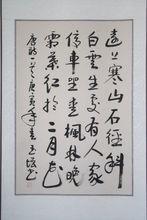 遠上寒山石徑斜
白雲生處有人家
停車坐愛楓林晚
霜葉紅於二月花
唐詩一首庚寅年